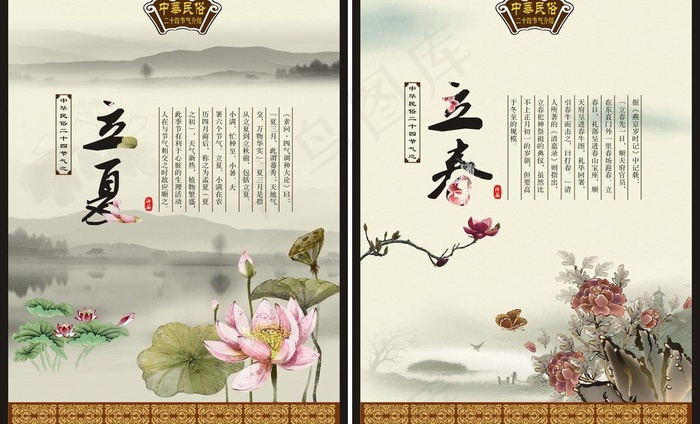 中華民俗
二十四节气介绍
中华民俗二十四节气之
立夏
《素问·四气调神大论》曰：
「夏三月，此谓蕃秀；天地气
交，万物华实」。夏三月是指
从立夏到立秋前，包括立夏、
小满、忙种至、小暑、大
暑六个节气。立夏、小满在农
历四月前后，称之为孟夏（夏
之初），天气渐热，植物繁盛，
此季节有利于心脏的生理活动
人在与节气相交之时故应顺之
中華民俗
二十四节气介绍
中华民俗二十四节气之
立春
据《燕京岁时记》中记载：
「立春先一日，顺天府官员，
在东直门外一里春场迎春。立
春日，礼部呈进春山宝座，顺
天府呈进春牛图，礼毕回署，
引春牛而击之，曰打春」。清
人所著的《清嘉录》则指出，
立春祀神祭祖的典仪，虽然比
不上正月初一的岁朝，但要高
于冬至的规模。